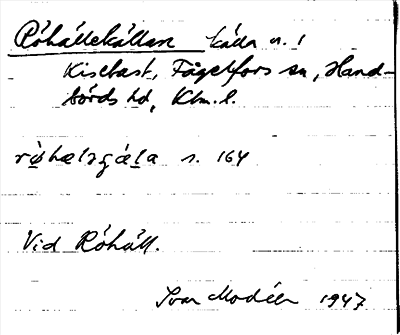 Röhällekällan källa n. 1
Kislast, Fågelfors sn, Hand-
börds hd, Klm. l.
røhælzgæla s. 164
Vid Röhäll.
Ivar Modéer 1947